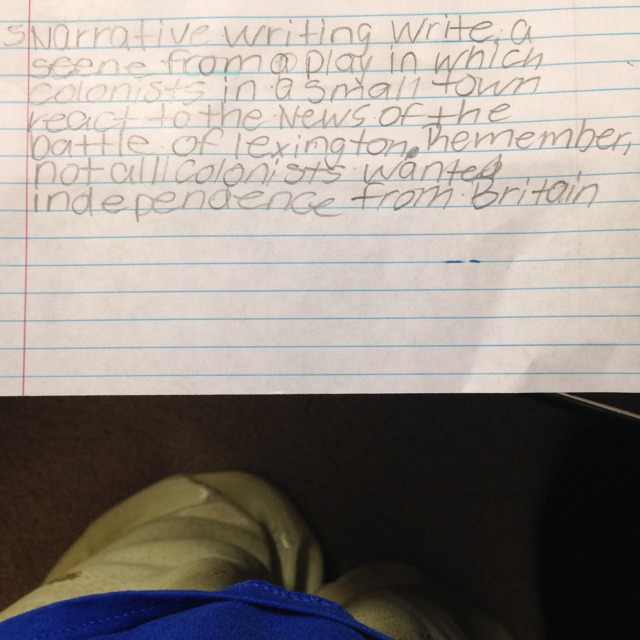 5 Narrative writing write a
scene from a play in which
colonists in a small town
react to the News of the
battle of lexington. Remember,
not alll colonists wanted
independence from Britain